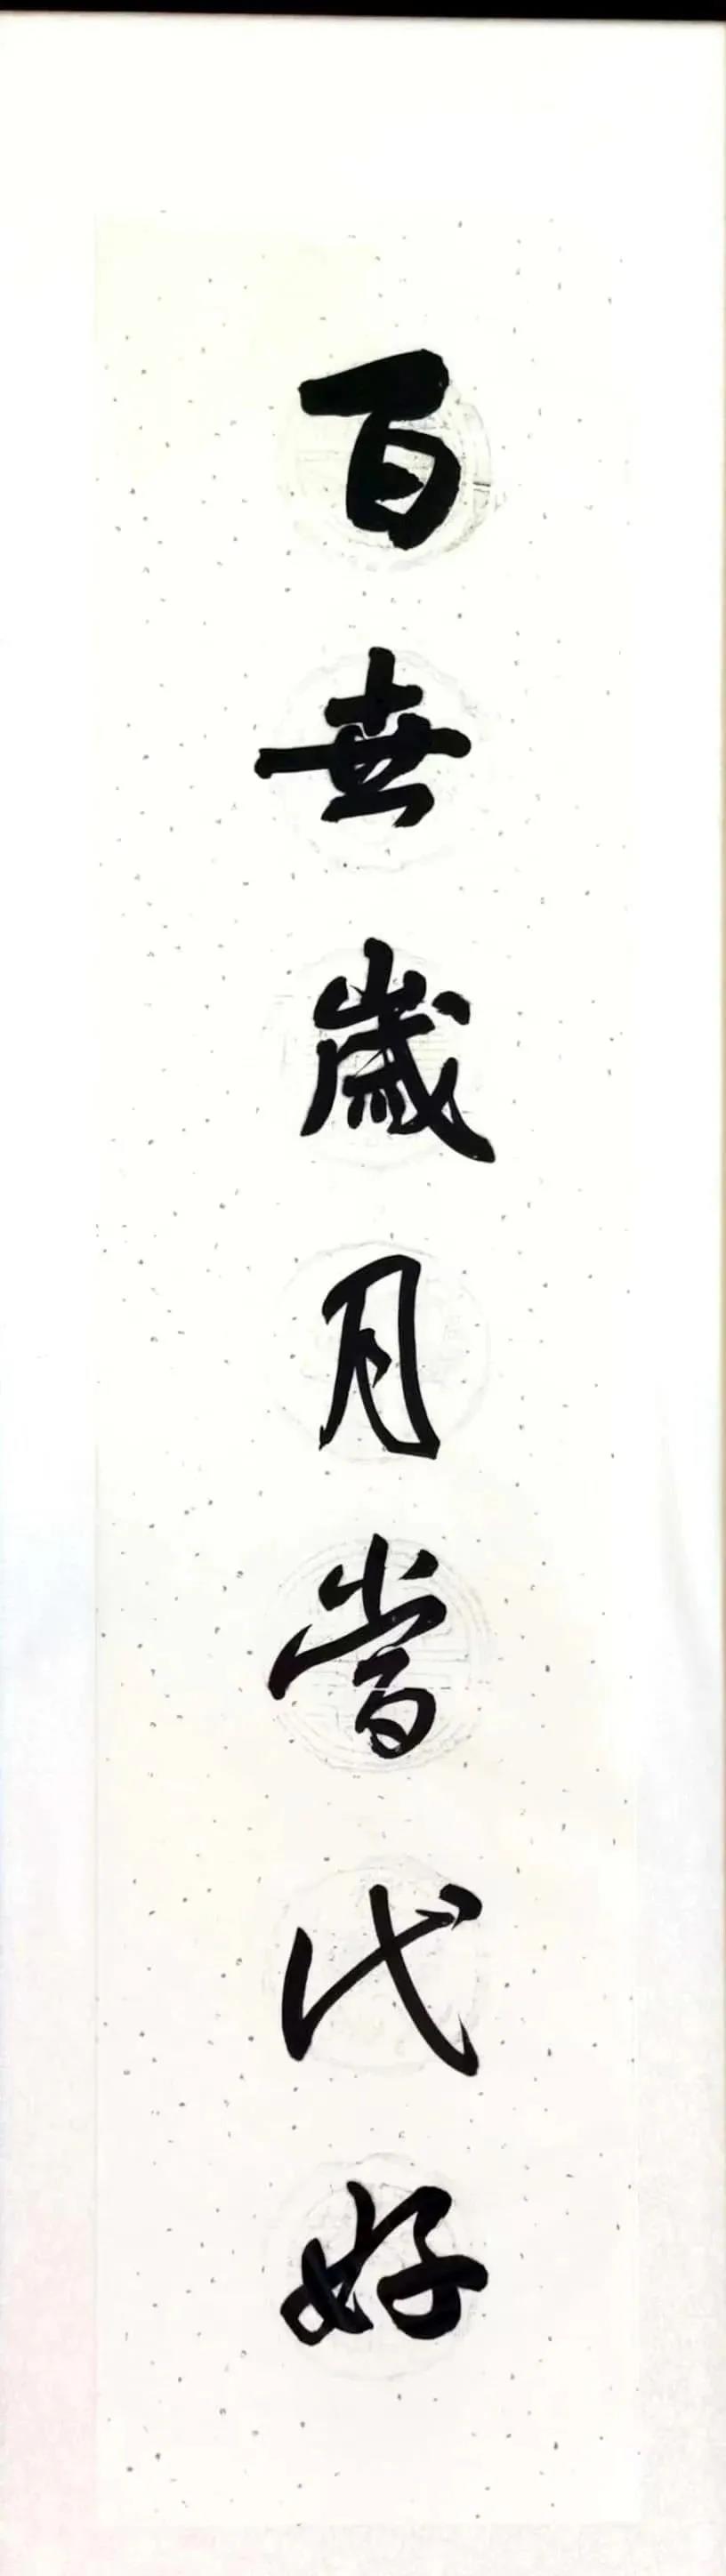 百世歲月當代好